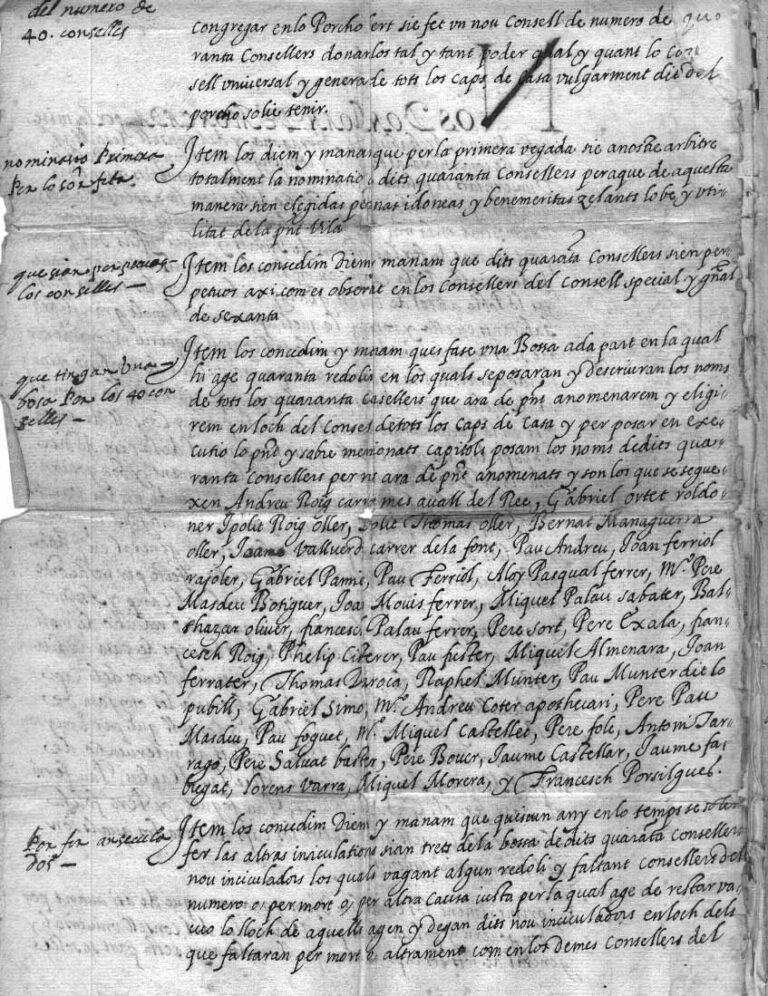 del numero de
40. consellés
congregar enlo Porcho sie fet un nou Consell de numero de quo
ranta Consellers donarlos tal y tant poder qual y quant lo Con
sell universal y general de tots los caps de casa vulgarment dit del
porcho solie tenir.
nominatio Primera
Per lo feta.
Item los diem y manam que per la primera vegada sie a nostre arbitre
totalment la nominatio dits quaranta Consellers peraque de aquesta
manera sien elegidas idoneas y benemeritas zelants lo be y uti
litat de la pnt vila
que sian
los conselles
Item los concedim Diem manam que dits quarata Consellers sien per
petuos axi com es observat en los Consellers del Consell special y gñal
de sexanta
que tingan una
bosa Per los 40 con
selles
Item los concedim y manam ques fase una Bossa a da part en la qual
hi age quaranta redolis en los quals se posaran y descriuran los noms
de tots los quaranta Casellers que ara de pnt anomenarem y eligi
rem en loch del Consell de tots los caps de casa y per posar en exe
cutio lo pnt y sobre mencionats capitols posam los noms de dits qua
ranta Consellers per nos ara de pnt anomenats y son los que se segue
xen Andreu Roig carrames avall del Ree, Gabriel ortet roldo
ner Ipolit Roig oller, Thomas oller, Bernat Managuerra
oller, Jaume Vallverd carrer dela font, Pau Andreu, Joan ferriol
rajoler, Gabriel Panne, Pau Ferriol, Aloy Pasqual ferrer, Mº Pere
Masdeu Botiguer, Joa Mouis ferrer, Miquel Palau sabater, Bal
thazar oliver, francesch Palau ferrer, Pere sort, Pere Exala, fran
cesch Roig, Phelip Citerer, Pau fuster, Miquel Almenara, Joan
ferrater, Thomas Daroca, Raphel Munter, Pau Munter dit lo
pubill, Gabriel Simo, Mº Andreu Coter apothecari, Pere Pau
Masdeu, Pau foguet, Mº Miquel Castellet, Pere fole, Antoni Tar
rago, Pere Salvat baster, Pere Bover, Jaume Castellar, Jaume fa
bregat, Lorens Varra, Miquel Morera, y Francesch Porsilgues.
Per fer
dos
Item los concedim Diem y manam que quiscun any en lo temps se solen
fer las altras insiculations sian trets de la bossa de dits quarata Consellers
nou insiculadors los quals vagant algun redoli y faltant Consellers del
numero o, per mort o, per altra causa iusta per la qual age de restar va
cuo lo lloch de aquells agen y degan dits nou insiculadors en loch dels
que faltaran per mort o, altrament com en los demes Consellers del